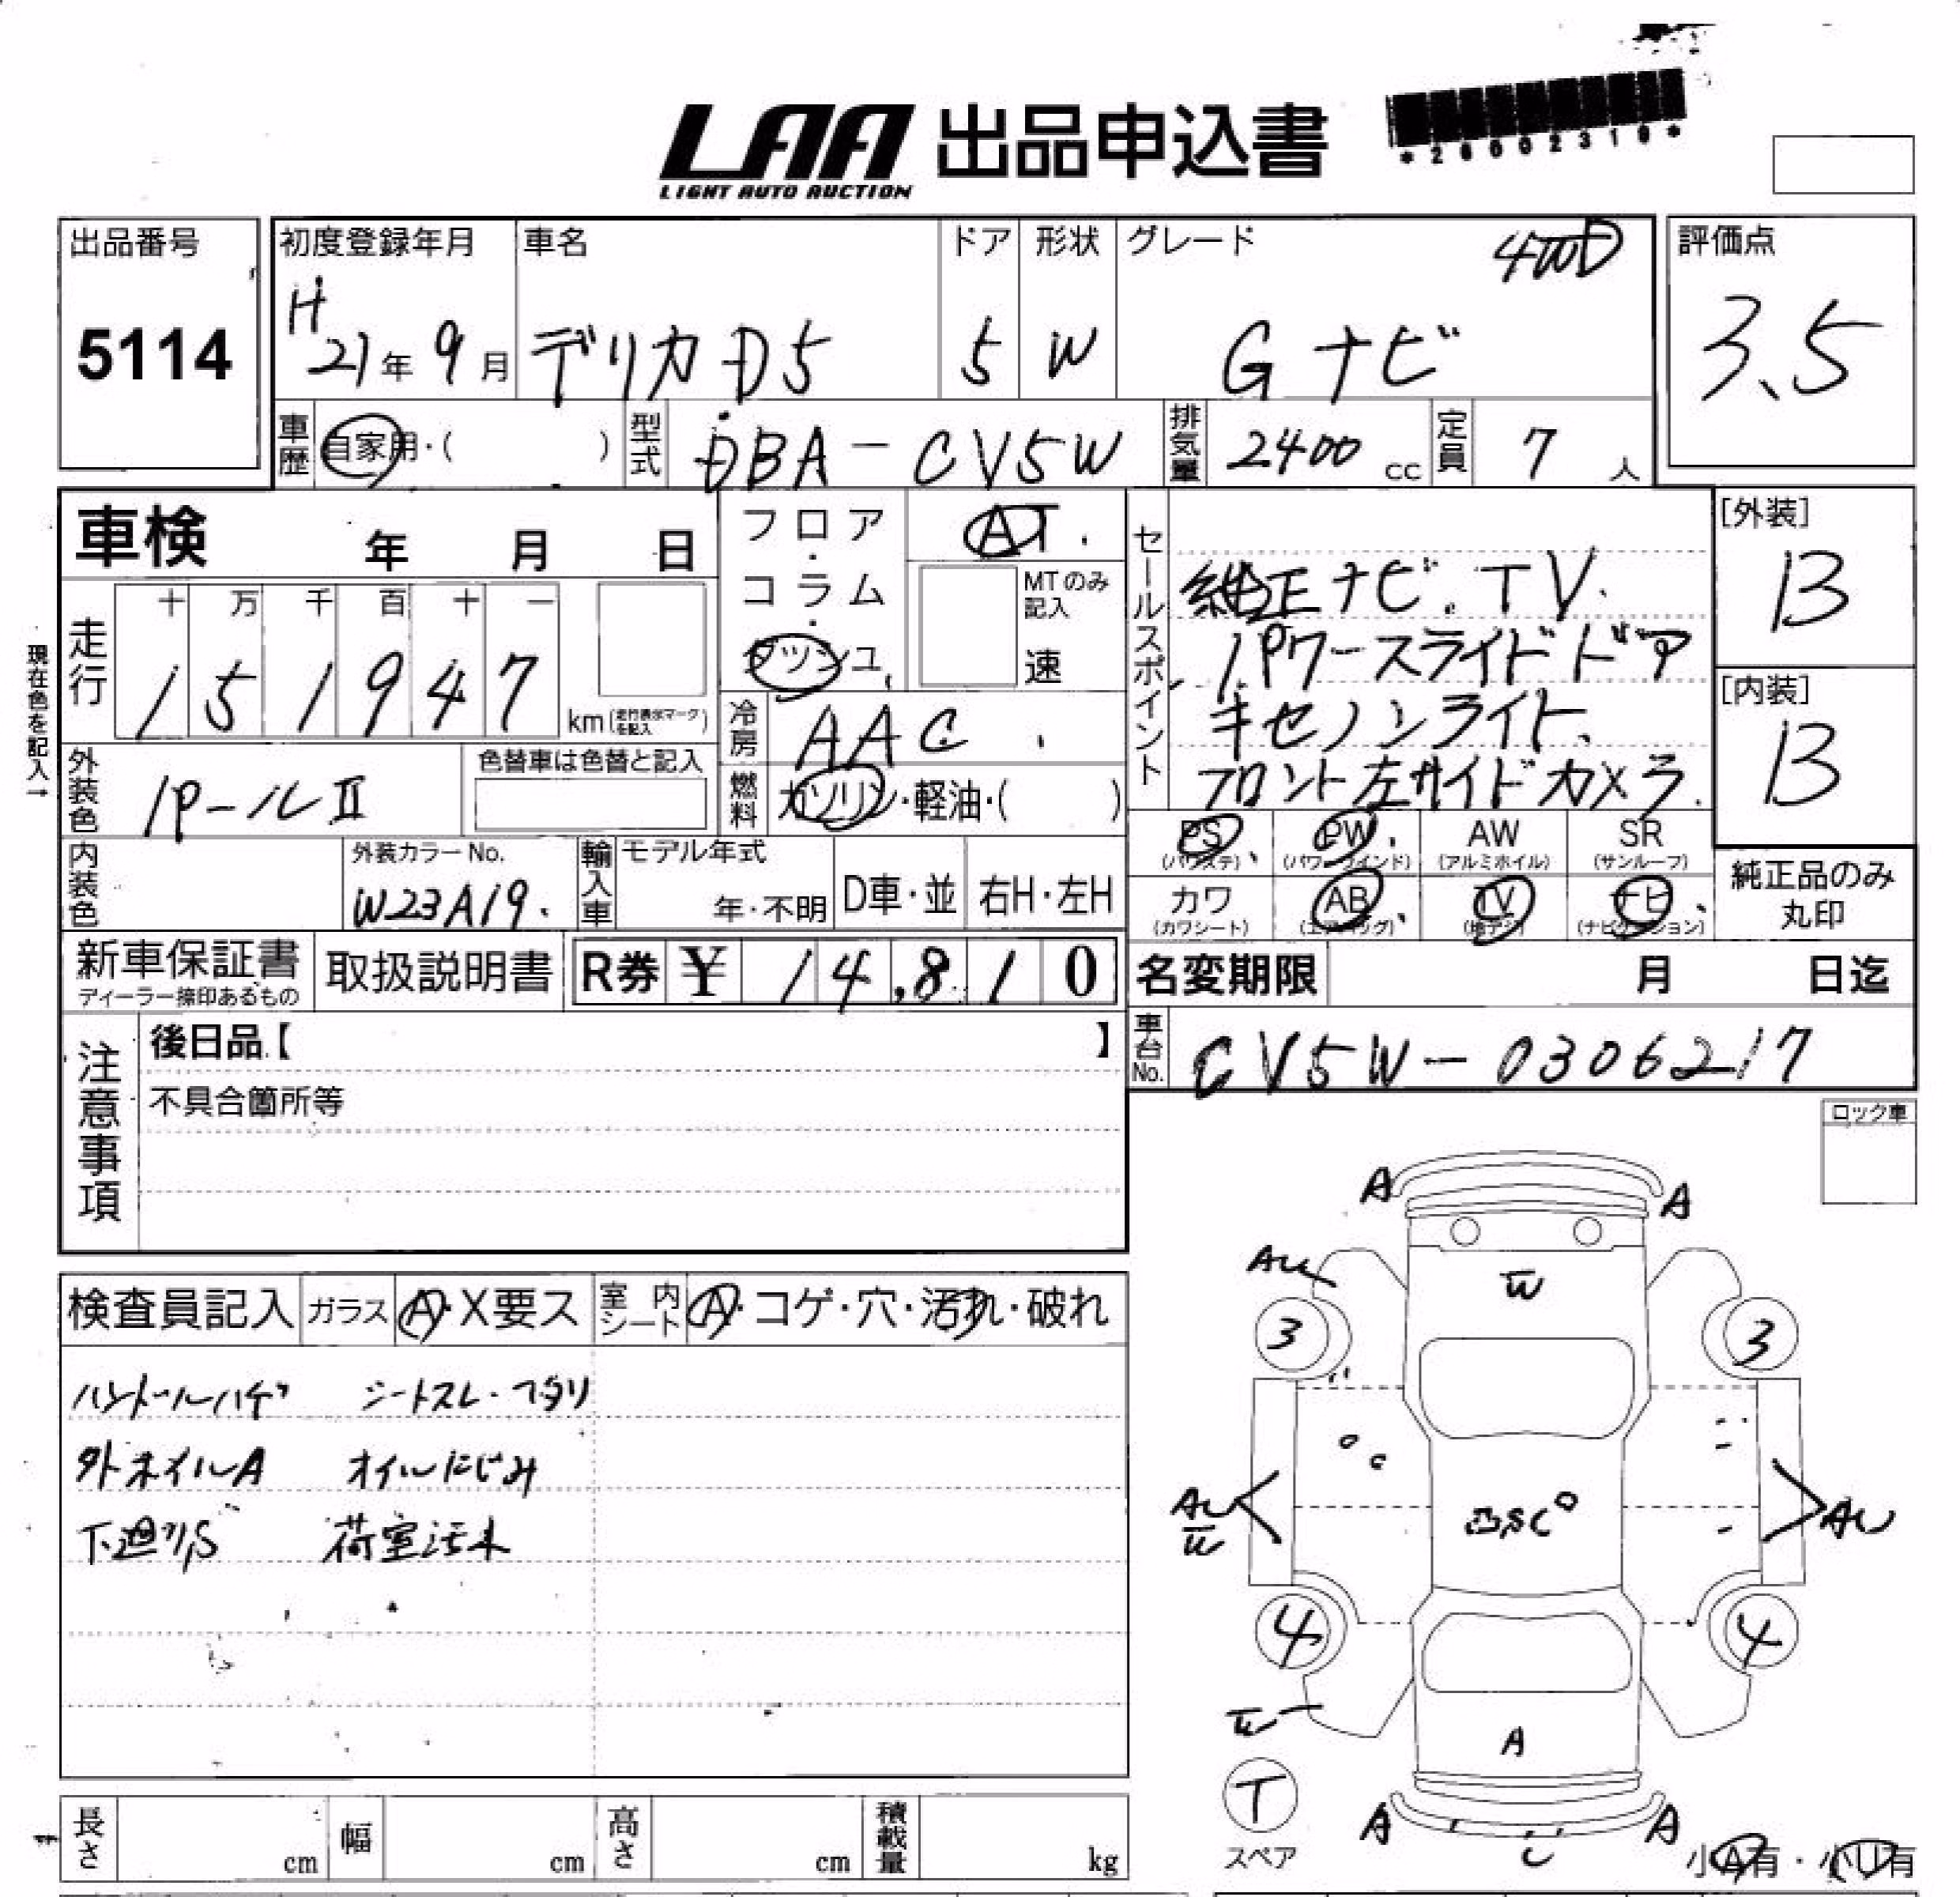 LAA 出品申込書
LIGHT AUTO AUCTION
*26002310*
出品番号
5114
初度登録年月
H
21年9月
車名
デリカD5
ドア
5
形状
W
グレード
4WD
Gナビ
評価点
3.5
車歴
自家用・( )
型式
DBA-CV5W
排気量
2400 cc
定員
7 人
車検 年 月 日
フロア・コラム・インパネ
AT.
MTのみ記入
速
走行
十 万 千 百 十 一
1 5 1 9 4 7
km(走行表示マークを記入)
現在色を記入→
冷房
AAC
外装色
パールII
色替車は色替と記入
燃料
ガソリン・軽油・( )
内装色
外装カラーNo.
W23A19.
輸入車
モデル年式
年・不明
D車・並
右H・左H
セールスポイント
純正ナビ.TV.
パワースライドドア
キセノンライト、
フロント左サイドカメラ.
[外装]
B
[内装]
B
PS (パワステ)
PW (パワーウインド)
AW (アルミホイル)
SR (サンルーフ)
カワ (カワシート)
AB (エアバッグ)
TV (地デジ)
ナビ (ナビゲーション)
純正品のみ丸印
新車保証書
ディーラー捺印あるもの
取扱説明書
R券 ¥ 14,810
名変期限 月 日迄
車台No.
CV5W-0306217
注意事項
後日品【 】
不具合箇所等
ロック車
検査員記入
ガラス
A・X要ス
室内シート
A・コゲ・穴・汚れ・破れ
ハンドルハゲ シートスレ・ヘタリ
外ホイルA オイルにじみ
下廻りS 荷室汚れ
A A
AU
W
3 3
AU
W
AU
4 4
W
A
T
スペア
A A
U
小A有・小U有
長さ cm
幅 cm
高さ cm
積載量 kg